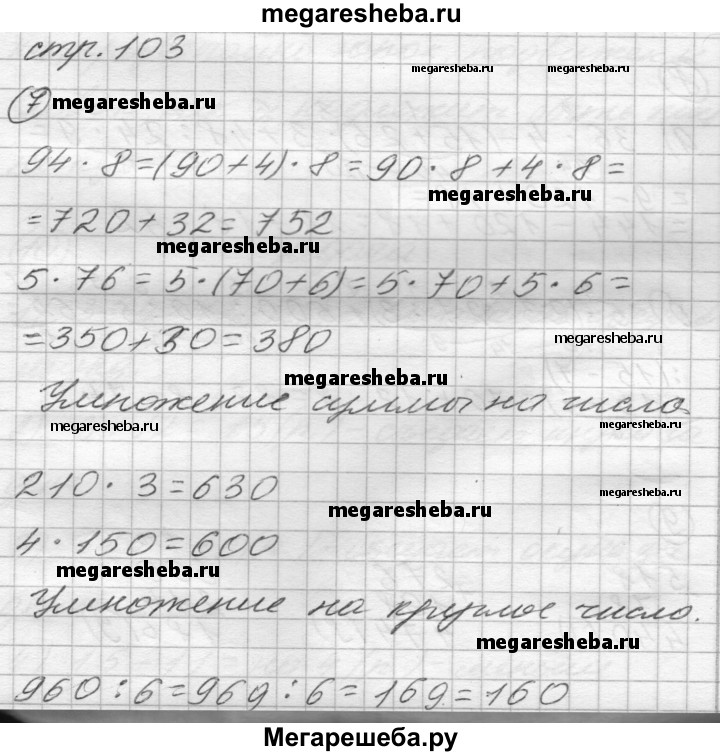 megaresheba.ru
стр. 103
megaresheba.ru megaresheba.ru
7 megaresheba.ru
94 · 8 = (90 + 4) · 8 = 90 · 8 + 4 · 8 =
megaresheba.ru
= 720 + 32 = 752
megaresheba.ru
5 · 76 = 5 · (70 + 6) = 5 · 70 + 5 · 6 =
= 350 + 30 = 380
megaresheba.ru
megaresheba.ru
Умножение суммы на число.
megaresheba.ru megaresheba.ru
210 · 3 = 630
megaresheba.ru
megaresheba.ru
4 · 150 = 600
megaresheba.ru
Умножение на круглое число.
megaresheba.ru
960 : 6 = 96д : 6 = 16д = 160
Мегарешеба.ру